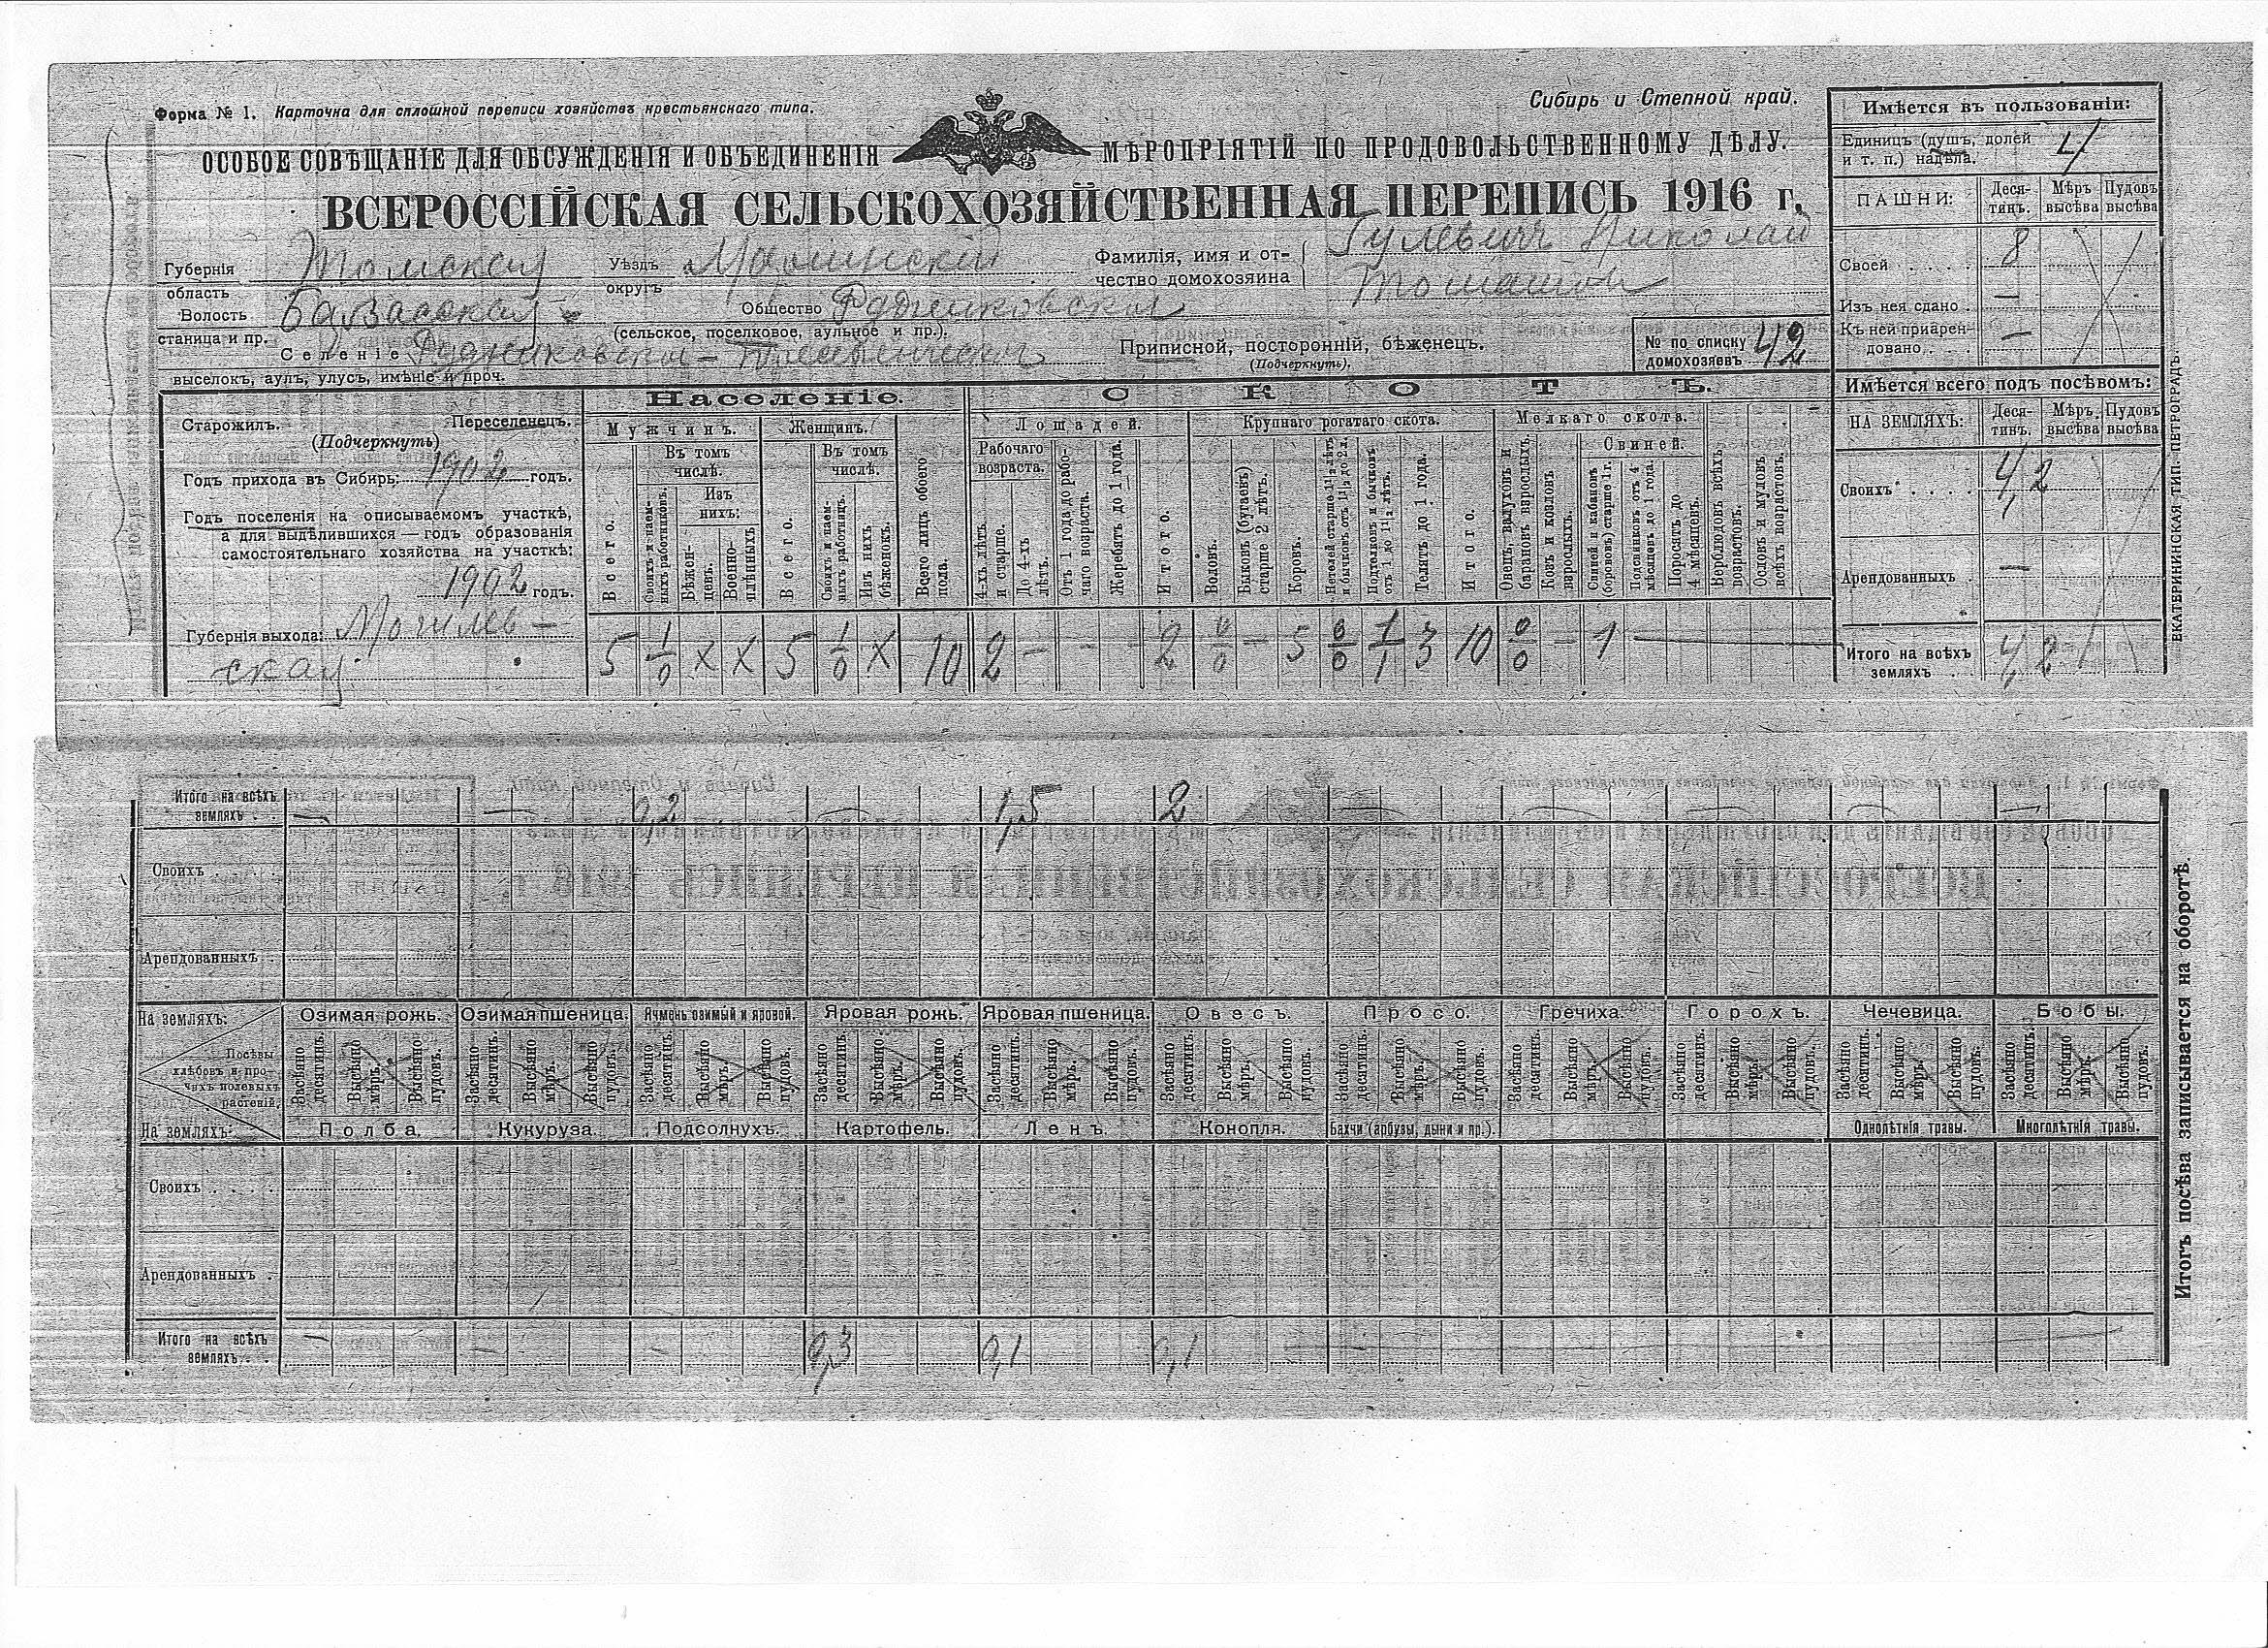 Форма № 1. Карточка для сплошной переписи хозяйствъ крестьянскаго типа.
Сибирь и Степной край.
ОСОБОЕ СОВѢЩАНІЕ ДЛЯ ОБСУЖДЕНІЯ И ОБЪЕДИНЕНІЯ МѢРОПРІЯТІЙ ПО ПРОДОВОЛЬСТВЕННОМУ ДѢЛУ.
ВСЕРОССІЙСКАЯ СЕЛЬСКОХОЗЯЙСТВЕННАЯ ПЕРЕПИСЬ 1916 г.
Губернія Томская Уѣздъ Маріинскій
область округъ
Фамилія, имя и от-
чество домохозяина
Гулевичъ Николай
Волость Общество
станица и пр. (сельское, поселковое, аульное и пр.).
Селеніе
выселокъ, аулъ, улусъ, имѣніе и проч.
Приписной, посторонній, бѣженецъ.
(Подчеркнуть).
№ по списку
домохозяевъ 42
Имѣется въ пользованіи:
Единицъ (душъ, долей
и т. п.) надѣла. 4
ПАШНИ: Деся-тинъ. Мѣръ высѣва Пудовъ высѣва
Своей 8
Изъ нея сдано —
Къ ней приарен-
довано —
Имѣется всего подъ посѣвомъ:
НА ЗЕМЛЯХЪ: Деся-тинъ. Мѣръ высѣва Пудовъ высѣва
Своихъ 4,2
Арендованныхъ —
Итого на всѣхъ
земляхъ 4,2
ЕКАТЕРИНИНСКАЯ ТИП. ПЕТРОГРАДЪ.
Старожилъ. Переселенецъ.
(Подчеркнуть)
Годъ прихода въ Сибирь: 1902 годъ.
Годъ поселенія на описываемомъ участкѣ,
а для выдѣлившихся — годъ образованія
самостоятельнаго хозяйства на участкѣ:
1902 годъ.
Губернія выхода: Могилев-
ская
Населеніе.
Мужчинъ. Женщинъ.
Въ томъ числѣ. Въ томъ числѣ.
Изъ нихъ:
Всего.
Своихъ и наем-ныхъ работниковъ.
Бѣжен-цевъ.
Военно-плѣнныхъ
Всего.
Своихъ и наем-ныхъ работницъ.
Изъ нихъ бѣженокъ.
Всего лицъ обоего пола.
СКОТЪ.
Лошадей. Крупнаго рогатаго скота. Мелкаго скота.
Рабочаго возраста. Свиней.
4-хъ лѣтъ и старше.
До 4-хъ лѣтъ.
Отъ 1 года до рабо-чаго возраста.
Жеребятъ до 1 года.
Итого.
Воловъ.
Быковъ (бугаевъ) старше 2 лѣтъ.
Коровъ.
Нетелей старше 1½ лѣтъ и бычковъ отъ 1½ до 2 л.
Подтелковъ и бычковъ отъ 1 до 1½ лѣтъ.
Телятъ до 1 года.
Итого.
Овецъ, валуховъ и барановъ взрослыхъ.
Козъ и козловъ взрослыхъ.
Свиней и кабановъ (борововъ) старше 1 г.
Подсвинковъ отъ 4 мѣсяцевъ до 1 года.
Поросятъ до 4 мѣсяцевъ.
Верблюдовъ всѣхъ возрастовъ.
Ословъ и муловъ всѣхъ возрастовъ.
5 1/0 х х 5 1/0 х 10 2 — - - 2 0/0 — 5 0/0 1/1 3 10 0/0 — 1 —
Итого на всѣхъ
земляхъ — — 0,2 — 1,5 2 — — — — —
Своихъ
Арендованныхъ
На земляхъ: Озимая рожь. Озимая пшеница. Ячмень озимый и яровой. Яровая рожь. Яровая пшеница. Овесъ. Просо. Гречиха. Горохъ. Чечевица. Бобы.
Посѣвы
хлѣбовъ и про-
чихъ полевыхъ
растеній.
Засѣяно десятинъ. Высѣяно мѣръ. Высѣяно пудовъ.
Засѣяно десятинъ. Высѣяно мѣръ. Высѣяно пудовъ.
Засѣяно десятинъ. Высѣяно мѣръ. Высѣяно пудовъ.
Засѣяно десятинъ. Высѣяно мѣръ. Высѣяно пудовъ.
Засѣяно десятинъ. Высѣяно мѣръ. Высѣяно пудовъ.
Засѣяно десятинъ. Высѣяно мѣръ. Высѣяно пудовъ.
Засѣяно десятинъ. Высѣяно мѣръ. Высѣяно пудовъ.
Засѣяно десятинъ. Высѣяно мѣръ. Высѣяно пудовъ.
Засѣяно десятинъ. Высѣяно мѣръ. Высѣяно пудовъ.
Засѣяно десятинъ. Высѣяно мѣръ. Высѣяно пудовъ.
Засѣяно десятинъ. Высѣяно мѣръ. Высѣяно пудовъ.
На земляхъ: Полба. Кукуруза. Подсолнухъ. Картофель. Ленъ. Конопля. Бахчи (арбузы, дыни и пр.). Однолѣтнія травы. Многолѣтнія травы.
Своихъ
Арендованныхъ
Итого на всѣхъ
земляхъ — — - 0,3 0,1 0,1
Итогъ посѣва записывается на оборотѣ.